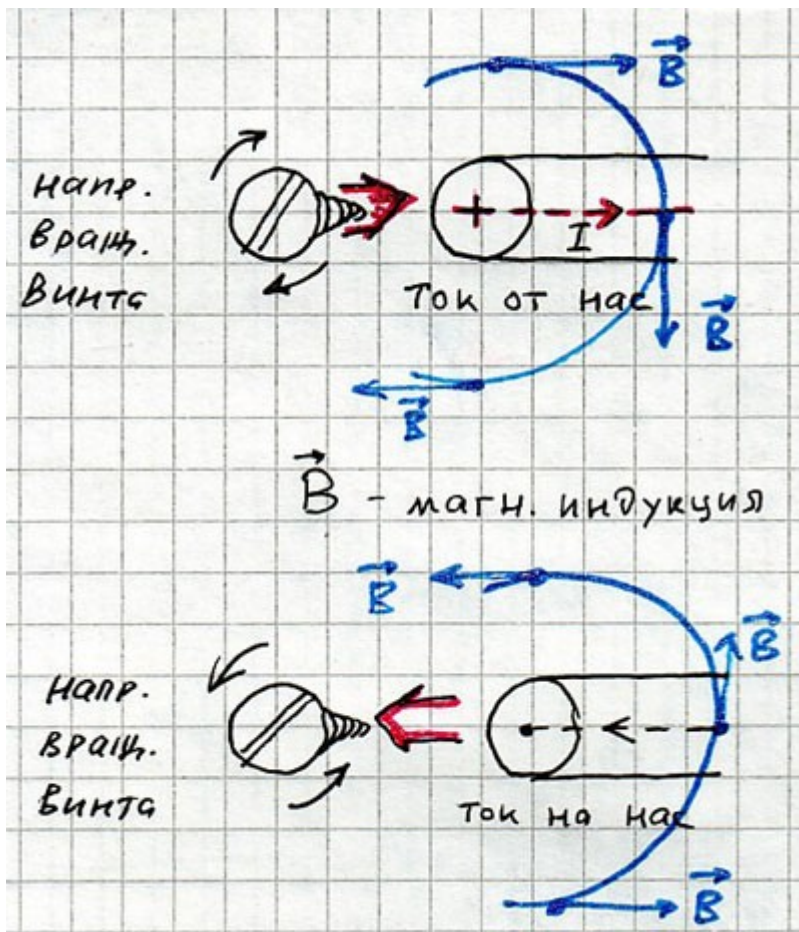 B
напр.
вращ.
винта
I
ток от нас
B
B
B - магн. индукция
B
B
напр.
вращ.
винта
ток на нас
B